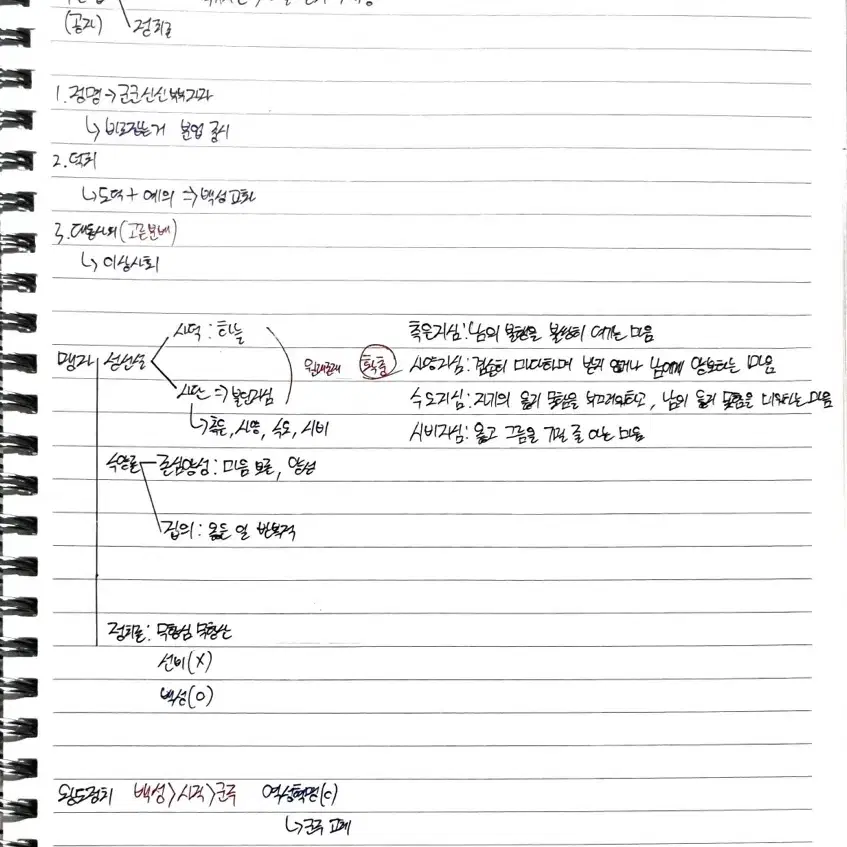 (공자) 정치론
1. 정명 → 군군신신부부자자
↳ 바로잡는거 분업 중시
2. 덕치
↳ 도덕 + 예의 ⇒ 백성 교화
3. 대동사회 (고른분배)
↳ 이상사회
맹자 성선설
사덕 : 하늘
사단 ⇒ 불인지심
↳ 측은, 사양, 수오, 시비
원래존재 확충
측은지심 : 남의 불행을 불쌍히 여기는 마음
사양지심 : 겸손히 마다하며 받지 않거나 남에게 양보하는 마음
수오지심 : 자기의 옳지 못함을 부끄러워하고, 남의 옳지 못함을 미워하는 마음
시비지심 : 옳고 그름을 가릴 줄 아는 마음
수양론 존심양성 : 마음 보존, 양성
집의 : 옳은 일 반복적
정치론 : 무항심 무항산
선비 (X)
백성 (O)
왕도정치 백성 > 사직 > 군주 역성혁명(c)
↳ 군주 교체